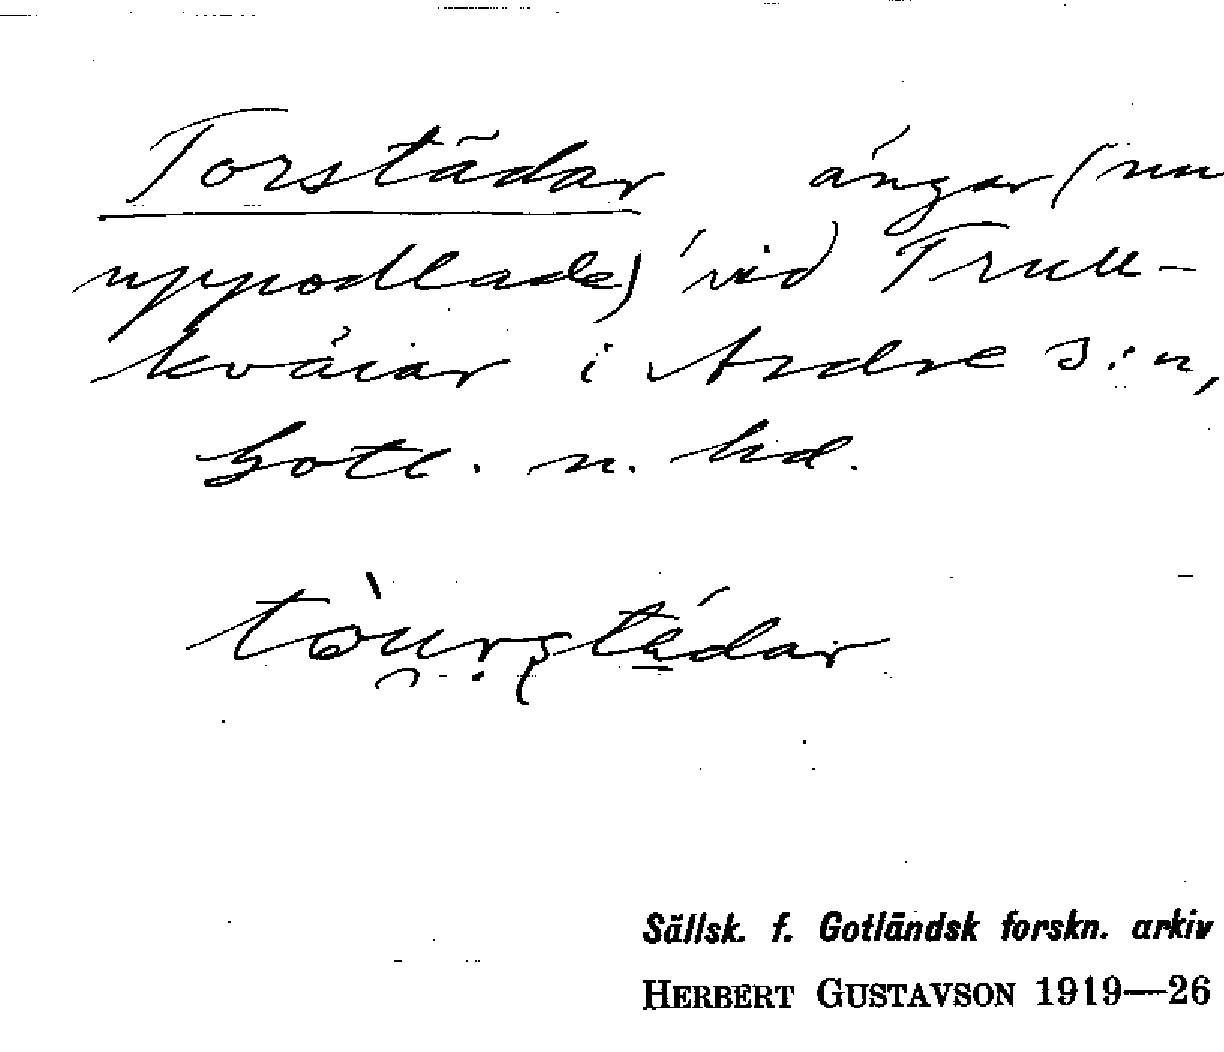 Torstädar ängar (nu
uppodlade) vid Trull-
kväiar i Ardre s:n,
Gotl. n. hd.
tòurstädar
Sällsk. f. Gotländsk forskn. arkiv
HERBERT GUSTAVSON 1919—26